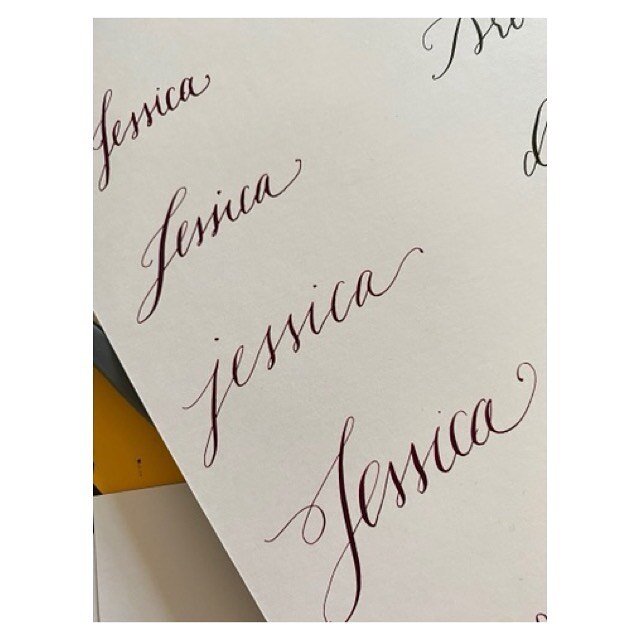 Jessica
Jessica
jessica
Jessica